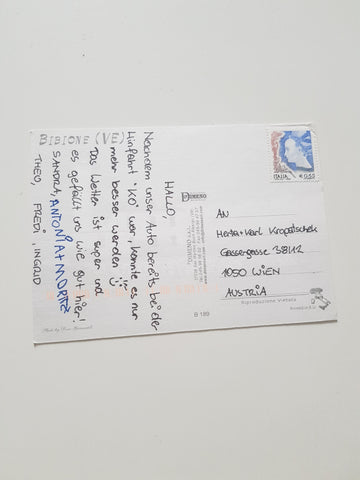 BIBIONE (VE)
HALLO,
Nachdem unser Auto bereits bei der
Hinfahrt "KO" war, konnte es nur
mehr besser werden!
Das Wetter ist super und
es gefällt uns wie gut hier!
SANDRA, ANTONIA + MORITZ
THEO, FREDI, INGRID
ITALIA
€ 0,52
AN
Herta + Karl Kropatschek
Gassergasse 38/12
1050 WIEN
AUSTRIA
Riproduzione Vietata
B 189